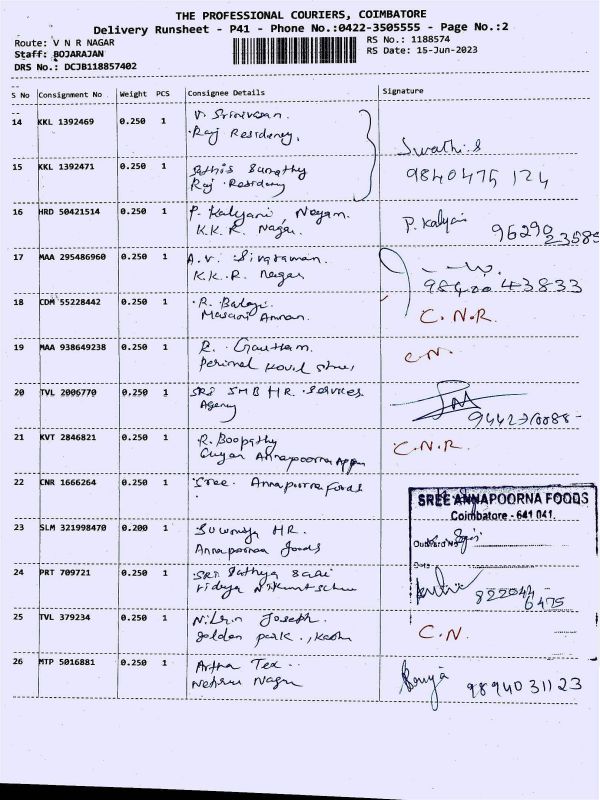 THE PROFESSIONAL COURIERS, COIMBATORE
Delivery Runsheet - P41 - Phone No.:0422-3505555 - Page No.:2
Route: V N R NAGAR
RS No.: 1188574
Staff: BOJARAJAN
RS Date: 15-Jun-2023
DRS No.: DCJB118857402
S No Consignment No Weight PCS Consignee Details Signature
14 KKL 1392469 0.250 1 V. Srinivasan.
Raj Residency,
Swathi.S
15 KKL 1392471 0.250 1 Sumathy
Raj Residency
9840475 124
16 HRD 50421514 0.250 1 P. Kalyani, Nayam.
K.K.R. Nagar.
P. Kalyani
17 MAA 295486960 0.250 1 A.V. Sivaraman.
K.K.R. Nagar
43833
18 CDM 55228442 0.250 1 R. Balaji
Masani Amman.
C.N.R.
19 MAA 938649238 0.250 1 R. Gautham.
Perimal Kovil
C.N.
20 TVL 2006770 0.250 1 SRI SMB HR. Services
Agency
21 KVT 2846821 0.250 1 R. Boopathy
Annapoorna
C.N.R.
22 CNR 1666264 0.250 1 Sree. Annapurna foods
SREE ANNAPOORNA FOODS
Coimbatore - 641 041.
23 SLM 321998470 0.200 1 HR.
Annapoorna foods
Outward No
Date
24 PRT 709721 0.250 1 SRI Sathya Sai
Vidya
822044
6475
25 TVL 379234 0.250 1 Joseph.
golden park.,
C.N.
26 MTP 5016881 0.250 1 Artha Tex
Nehru Nagar
9894031123